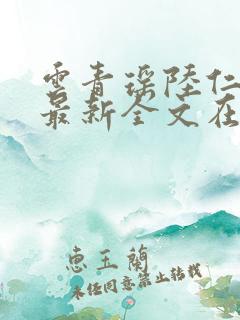 雲青瑶陸仁
最新全文在
惠玉蘭
未经同意禁止转载